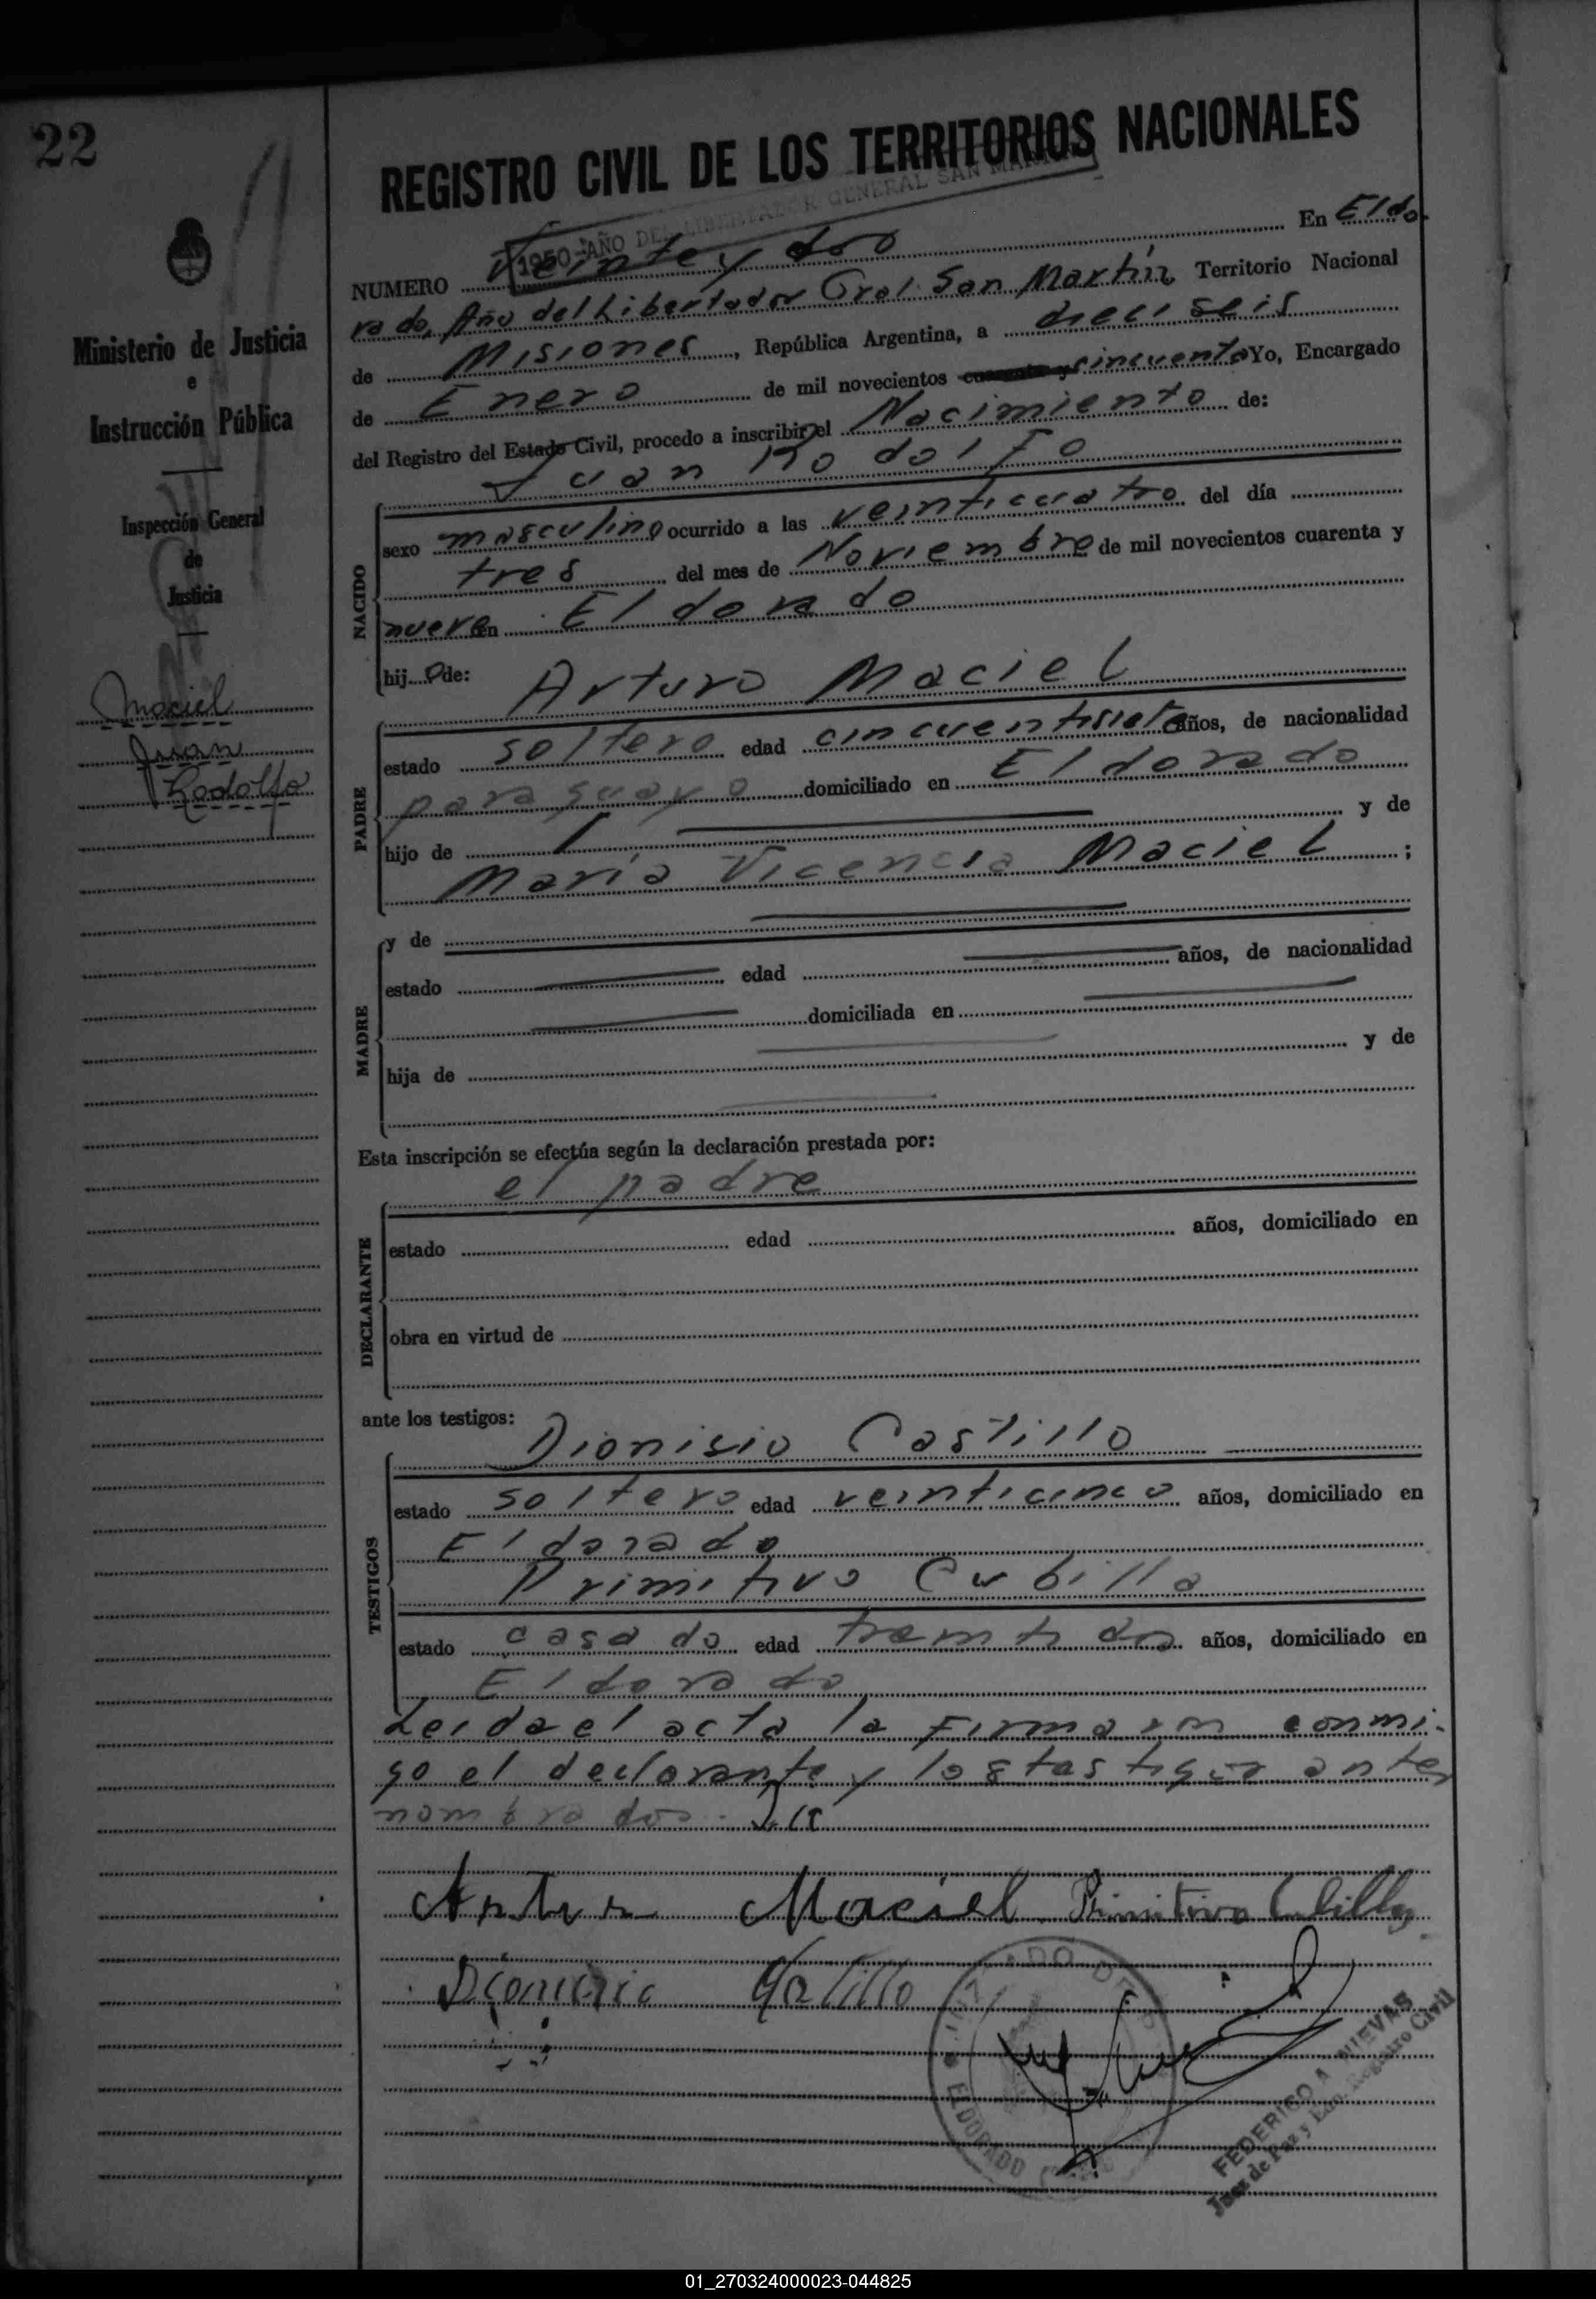 22
REGISTRO CIVIL DE LOS TERRITORIOS NACIONALES
1950-AÑO DEL LIBERTADOR GENERAL SAN MARTIN
NUMERO Veinte y dos En Eldo
rado, Año del Libertador Gral. San Martín, Territorio Nacional
de Misiones, República Argentina, a dieci seis
de Enero de mil novecientos cuarenta y cincuenta Yo, Encargado
del Registro del Estado Civil, procedo a inscribir el Nacimiento de:
Juan Rodolfo
NACIDO
sexo masculino ocurrido a las veinticuatro del día
tres del mes de Noviembre de mil novecientos cuarenta y
nueve en Eldorado
hij o de: Arturo Maciel
PADRE
estado soltero edad cincuentisiete años, de nacionalidad
paraguayo domiciliado en Eldorado
hijo de y de
María Vicencia Maciel ;
MADRE
y de
estado edad años, de nacionalidad
domiciliada en
hija de y de
Esta inscripción se efectúa según la declaración prestada por:
el padre
DECLARANTE
estado edad años, domiciliado en
obra en virtud de
ante los testigos:
Dionisio Castillo
TESTIGOS
estado soltero edad veinticinco años, domiciliado en
Eldorado
Primitivo Cubilla
estado casado edad treintidos años, domiciliado en
Eldorado
Leida el acta la firmaron conmi-
go el declarante y los testigos ante
nombrados.
Arturo Maciel Primitivo Cubilla
Dionisio Castillo
ELDORADO
FEDERICO A. CUEVAS
Juez de Paz y Enc. Registro Civil
Ministerio de Justicia
e
Instrucción Pública
Inspección General
de
Justicia
Maciel
Juan
Rodolfo
01_270324000023-044825